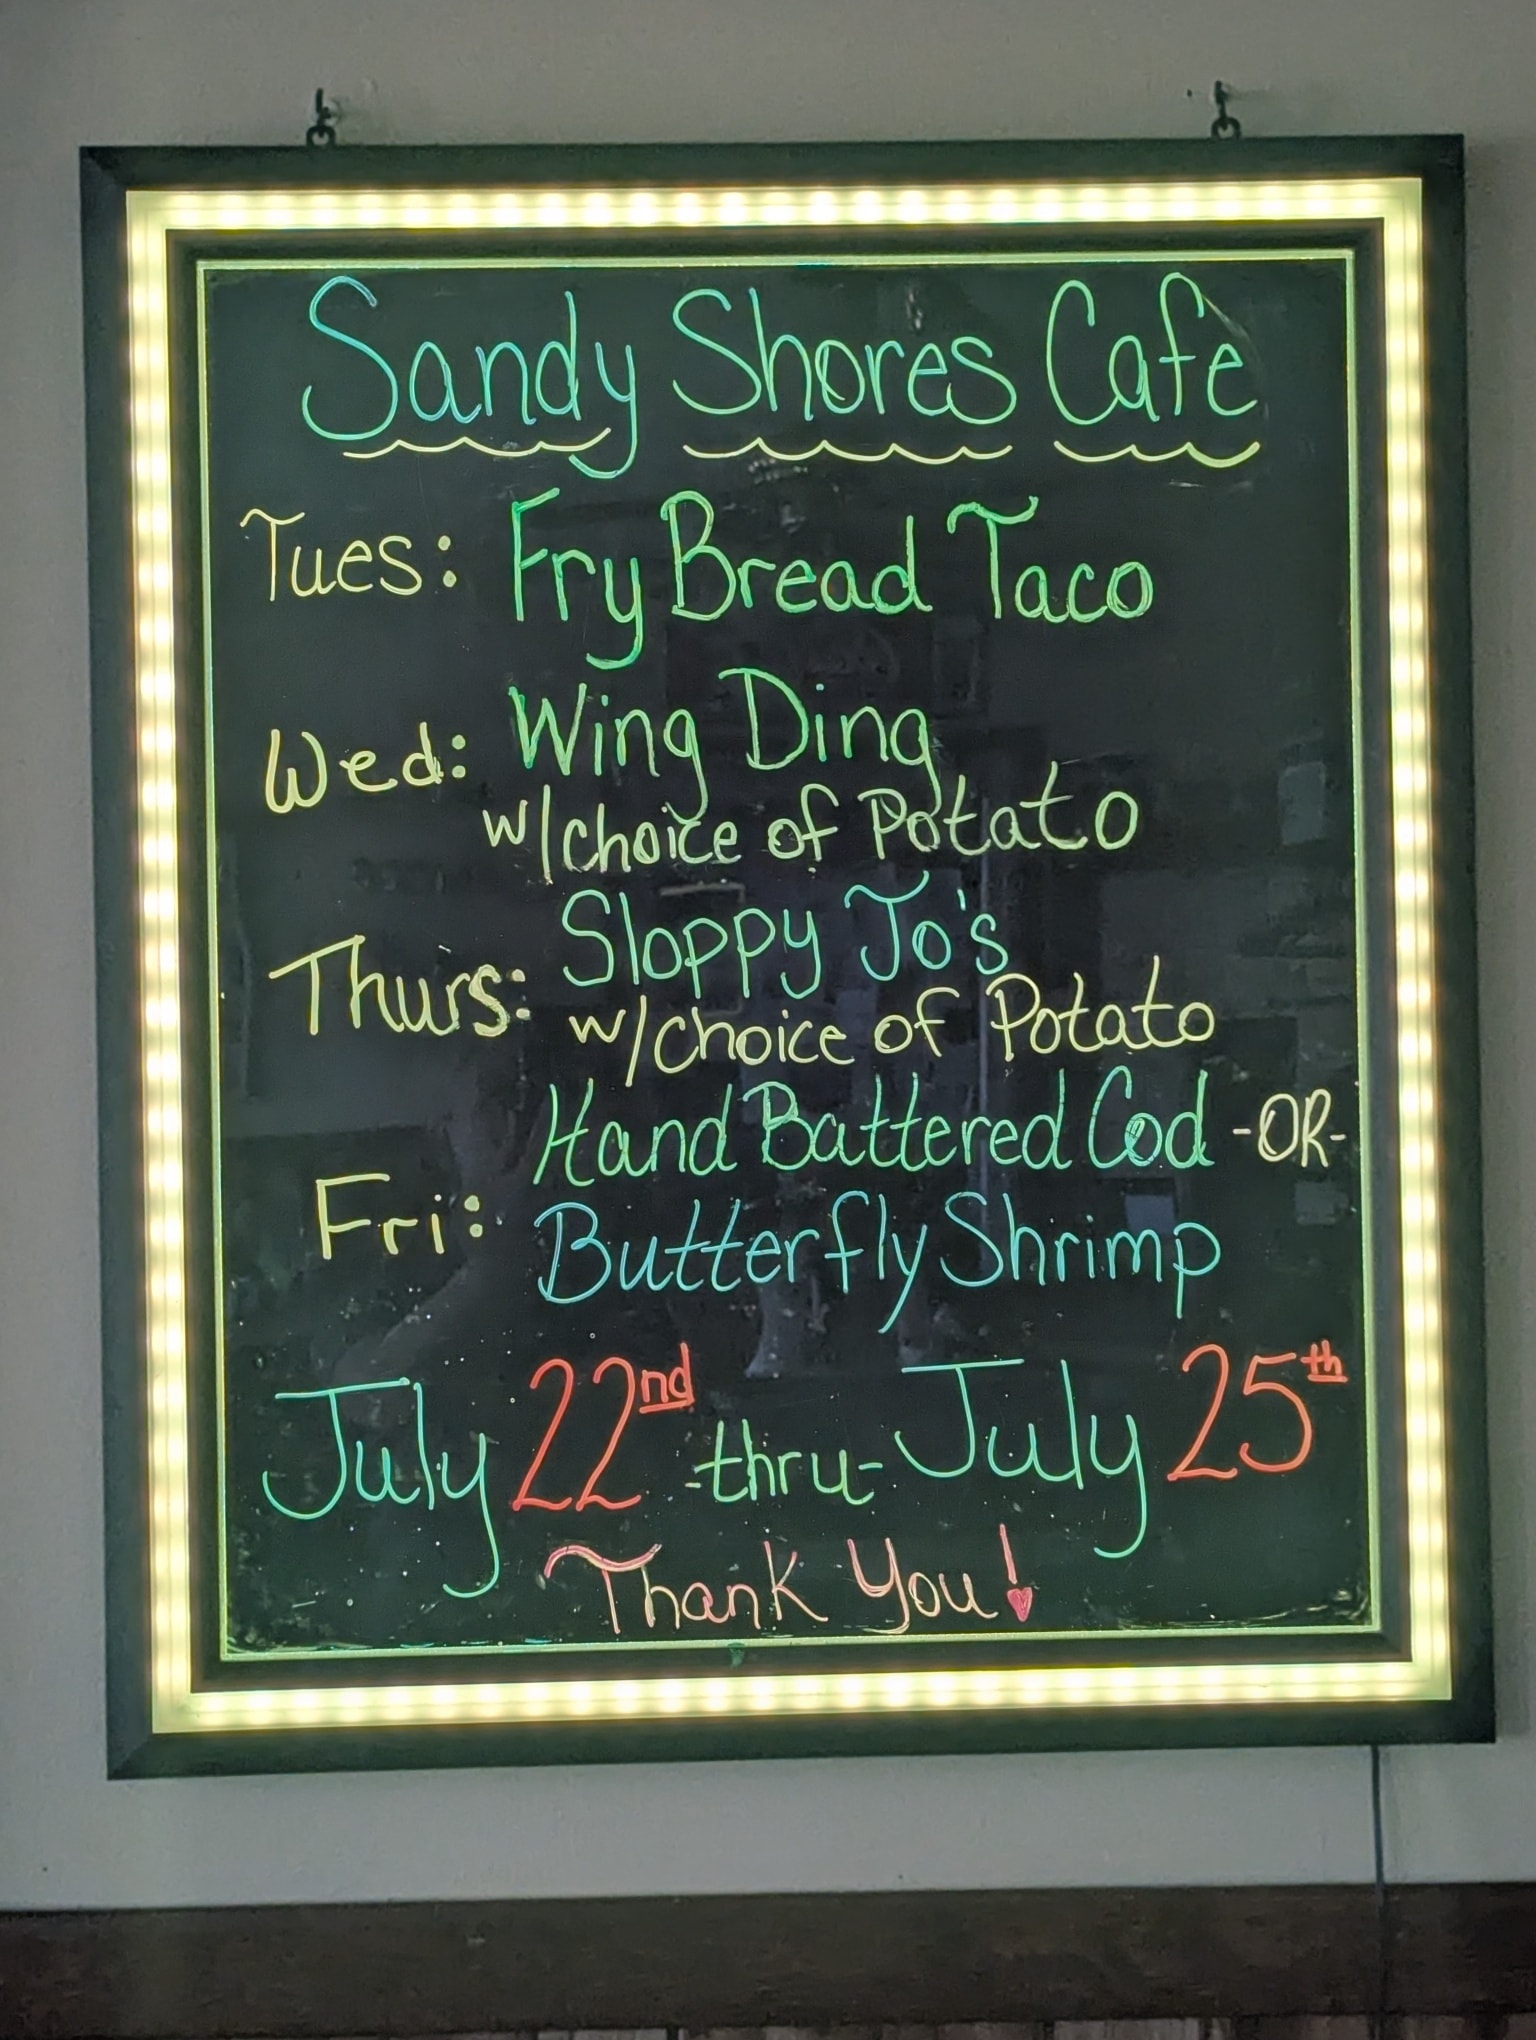 Sandy Shores Cafè
Tues: Fry Bread Taco
Wed: Wing Ding
w/choice of Potato
Thurs: Sloppy Jo's
w/choice of Potato
Fri: Hand Battered Cod -OR-
Butterfly Shrimp
July 22nd -thru- July 25th
Thank You!